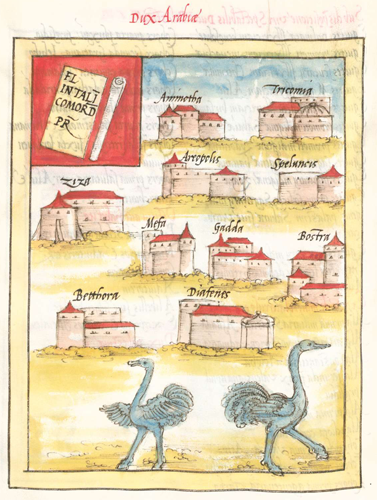 Dux Arabiæ
FL
INTALL
COMORD
PR
Ammotha
Tricomia
Areopolis
Speluncis
Ziza
Mefa
Gadda
Bostra
Betthora
Diafenes